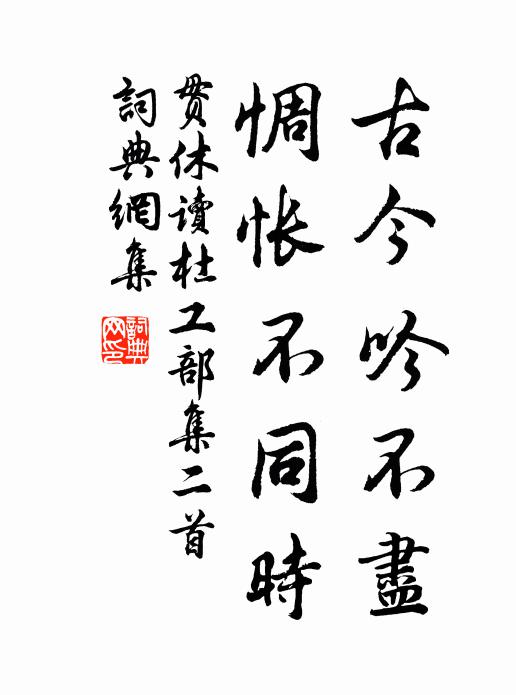 古今吟不盡
惆怅不同時
贯休讀杜工部集二首
詞典網集
詞典網印